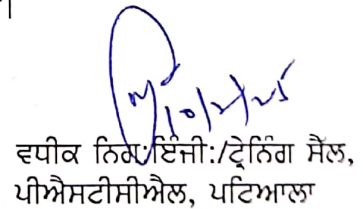 10/4/25
ਵਧੀਕ ਨਿਗ:ਇੰਜੀ:/ਟ੍ਰੇਨਿੰਗ ਸੈੱਲ,
ਪੀਐਸਟੀਸੀਐਲ, ਪਟਿਆਲਾ